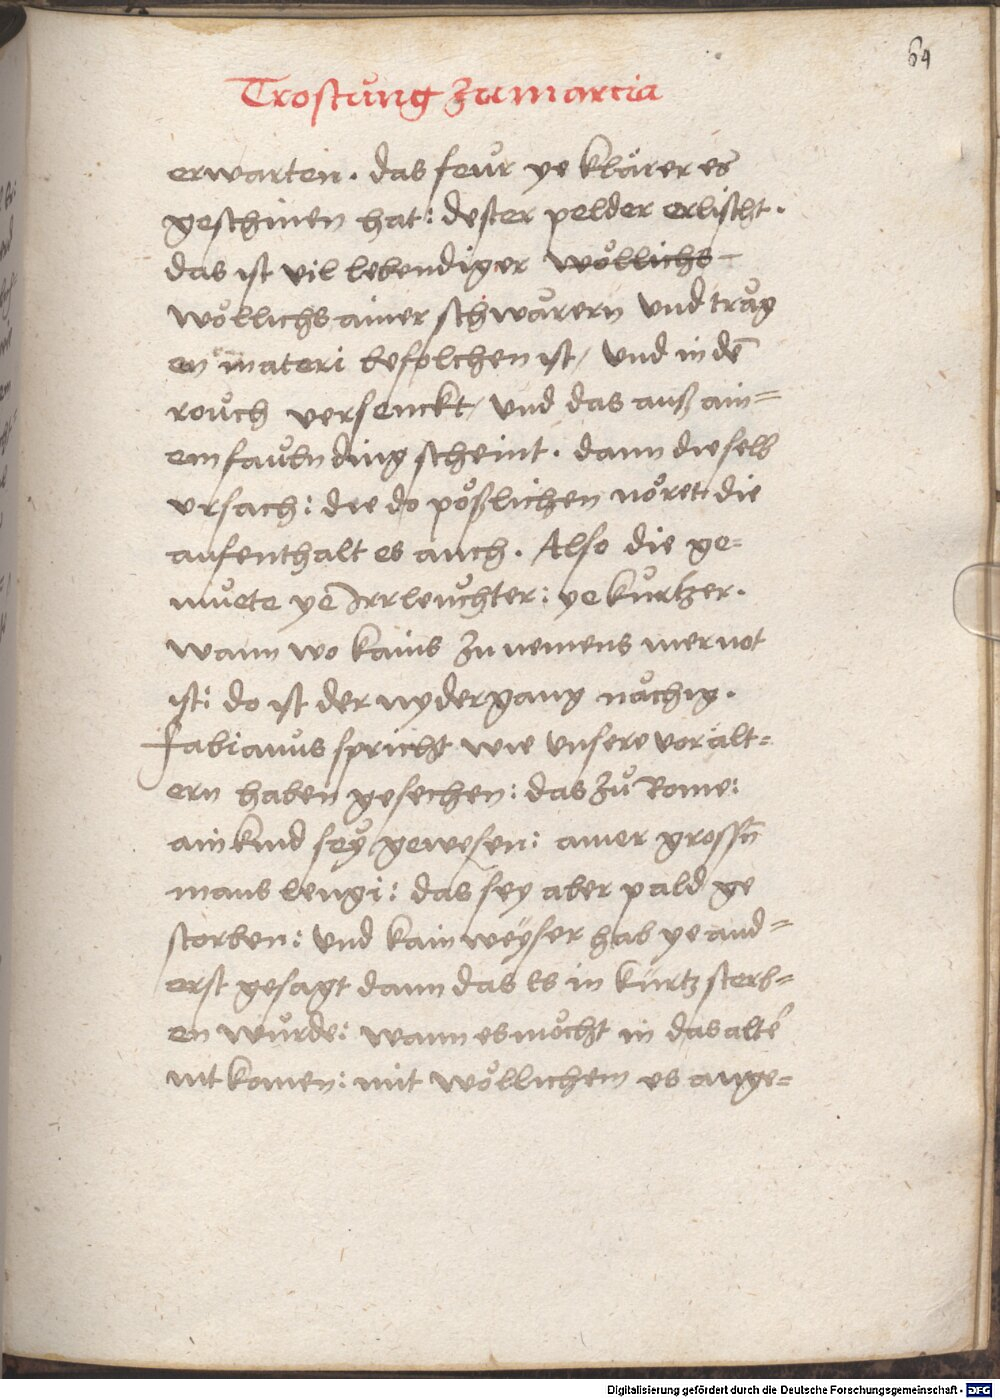 64
Trostung zu marcia
erwarten. das feur ye klärer es
geschinen hat: dester pelder erlischt.
das ist vil lebendiger wöllichs
wöllichs ainer schwärern vnd träg
en materi befolchen ist/ vnd in dē
rouch versenckt/ vnd das auß ain=
em ding scheint. dann die selb
vrsach: die do pößlichen nöret die
aufenthalt es auch. Also die ge=
muete ye Irrleuchter: ye kurtzer.
wann wo kains zu nemens mer not
ist: do ist der nydergang nächig.
Fabianus spricht wie vnsere vorält=
ern haben gesechen: das zů Rome:
ain kind sey gewesen: ainer grossn̄
mans lengi: das sey aber pald ge
storben: vnd kain weyser hab ye and=
erst gesagt dann das es in kurtz sterb=
en wurde: wann es möcht in das alter
nit komen: mit wöllichem es ange=
Digitalisierung gefördert durch die Deutsche Forschungsgemeinschaft - DFG